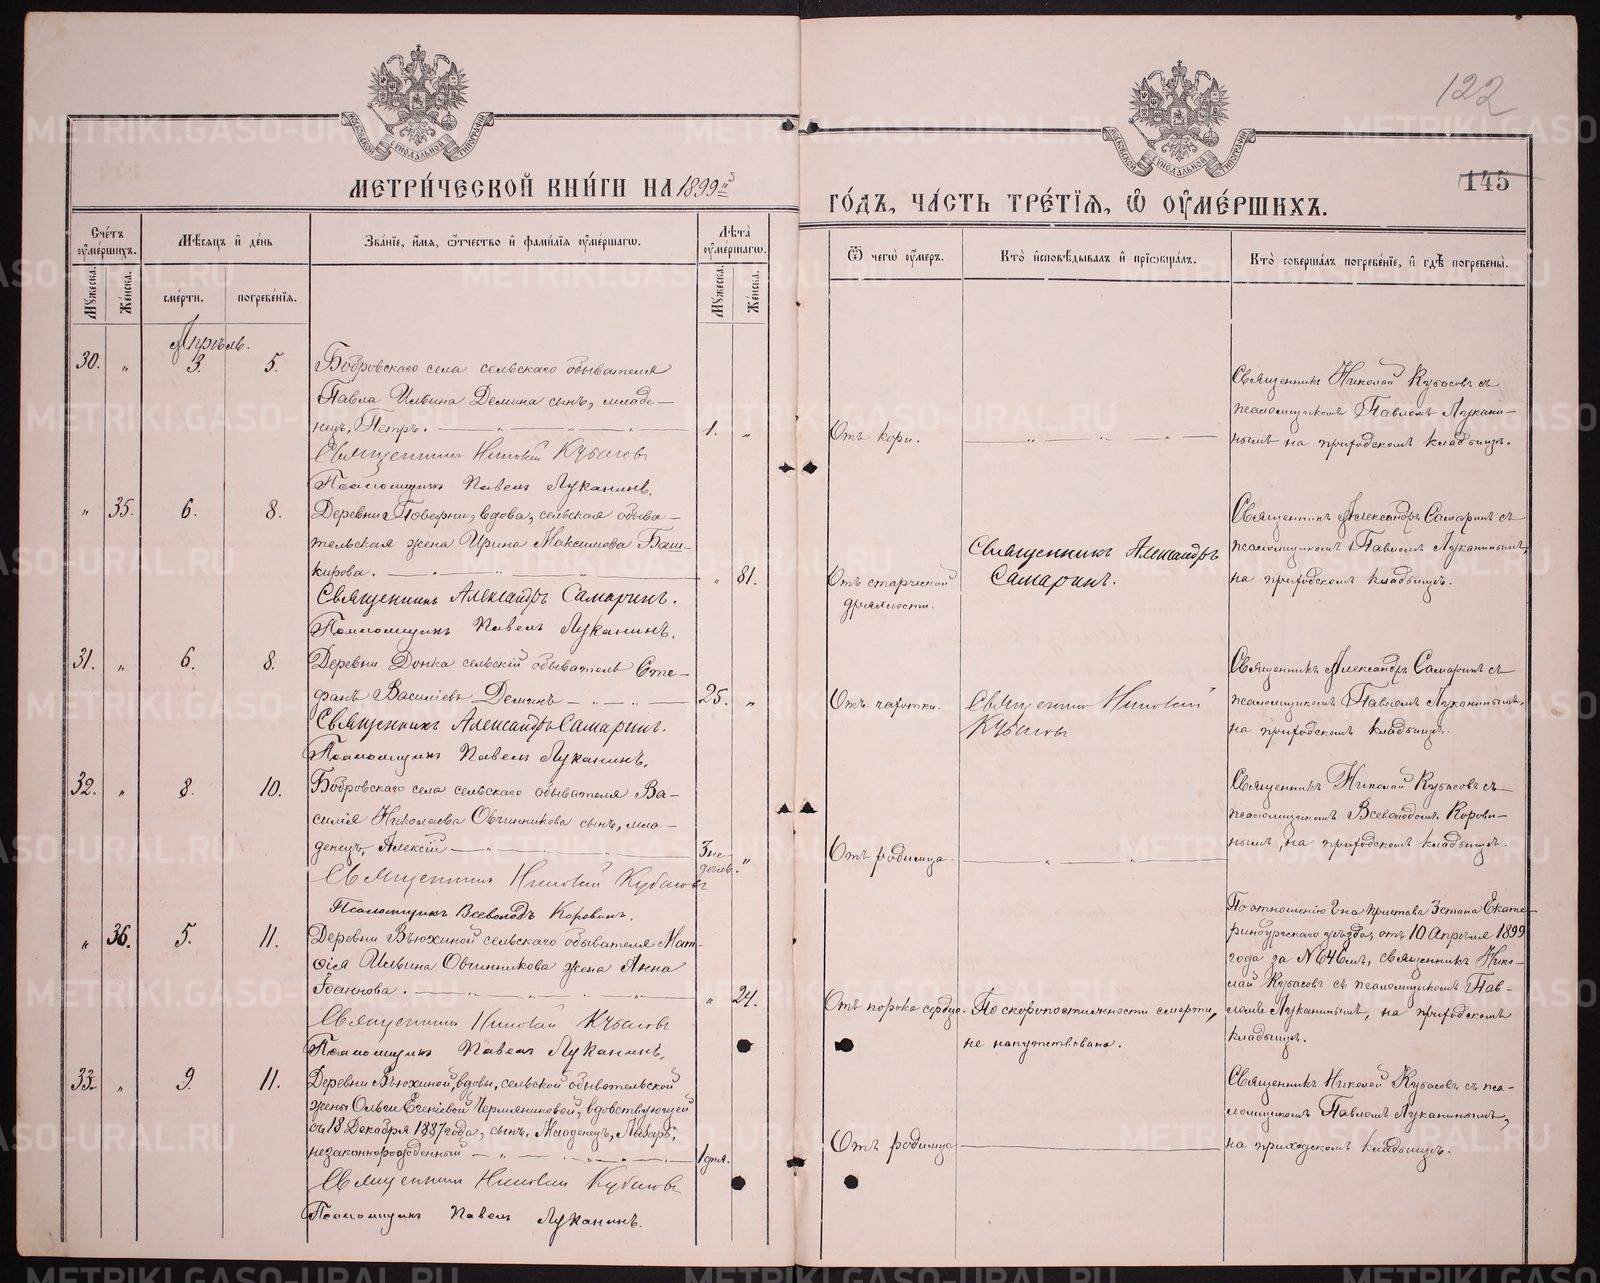 122
145
МОСКОВСКОЙ СѴНОДАЛЬНОЙ ТИПОГРАФІИ
МОСКОВСКОЙ СѴНОДАЛЬНОЙ ТИПОГРАФІИ
МЕТРИ́ЧЕСКОЙ КНИ́ГИ НА 1899й
ГО́ДЪ, ЧА́СТЬ ТРЕ́ТІѦ, Ѡ҆ ОУ҆МЕ́РШИХЪ.
Сче́тъ оу҆ме́ршихъ.
Мꙋ́жеска.
Же́нска.
Мѣ́сѧцъ и҆ де́нь
сме́рти.
погребе́нїѧ.
Зва́нїе, и҆́мѧ, ѻ҆́тчество и҆ фами́лїѧ оу҆ме́ршагѡ.
Лѣ́та оу҆ме́ршагѡ.
Мꙋ́жеска.
Же́нска.
Ѿ чегѡ̀ оу҆́меръ.
Кто̀ и҆сповѣ́дывалъ и҆ прїѡбща́лъ.
Кто̀ соверша́лъ погребе́нїе, и҆ гдѣ̀ погребены̀.
Апрѣль.
30. „ 3. 5. Бобровскаго села сельскаго обывателя
Павла Ильина Демина сынъ, младе-
нецъ, Петръ. 1. „
Священникъ Николай Кубасовъ
Псаломщикъ Павелъ Луканинъ.
Отъ кори.
Священникъ Николай Кубасовъ съ
псаломщикомъ Павломъ Лукани-
нымъ на приходскомъ кладбищѣ.
„ 35. 6. 8. Деревни Поварни, вдова, сельская обыва-
тельская жена Ирина Максимова Баш-
кирова. „ 81.
Священникъ Александръ Самаринъ.
Псаломщикъ Павелъ Луканинъ.
Отъ старческой
дряхлости.
Священникъ Александръ
Самаринъ.
Священникъ Александръ Самаринъ съ
псаломщикомъ Павломъ Луканинымъ,
на приходскомъ кладбищѣ.
31. „ 6. 8. Деревни Донка сельскій обыватель Сте-
фанъ Василіевъ Деминъ 25. „
Священникъ Александръ Самаринъ.
Псаломщикъ Павелъ Луканинъ.
Отъ чахотки.
Священникъ Николай
Кубасовъ
Священникъ Александръ Самаринъ съ
псаломщикомъ Павломъ Луканинымъ,
на приходскомъ кладбищѣ.
32. „ 8. 10. Бобровскаго села сельскаго обывателя Ва-
силія Николаева Овчинникова сынъ, мла-
денецъ, Алексій 3 не-
дѣль. „
Священникъ Николай Кубасовъ
Псаломщикъ Всеволодъ Коровинъ.
Отъ родимца.
Священникъ Николай Кубасовъ съ
псаломщикомъ Всеволодомъ Корови-
нымъ, на приходскомъ кладбищѣ.
„ 36. 5. 11. Деревни Вьюхиной сельскаго обывателя Мат-
ѳія Ильина Овчинникова жена Анна
Іоаннова. „ 24.
Священникъ Николай Кубасовъ
Псаломщикъ Павелъ Луканинъ.
Отъ порока сердца.
По скоропостижности смерти,
не напутствована.
По отношенію Г-на Пристава 3 стана Екате-
ринбургскаго уѣзда, отъ 10 Апрѣля 1899
года за № 646мъ, священникъ Нико-
лай Кубасовъ съ псаломщикомъ Пав-
ломъ Луканинымъ, на приходскомъ
кладбищѣ.
33. „ 9. 11. Деревни Вьюхиной, вдовы, сельской обывательской
жены Ольги Евгеніевой Чермяниновой, вдовствующей
съ 18 Декабря 1887 года, сынъ, Младенецъ, Лазарь,
незаконнорожденный 1 дня.
Священникъ Николай Кубасовъ
Псаломщикъ Павелъ Луканинъ.
Отъ родимца
Священникъ Николай Кубасовъ съ пса-
ломщикомъ Павломъ Луканинымъ,
на приходскомъ кладбищѣ.
METRIKI.GASO-URAL.RU